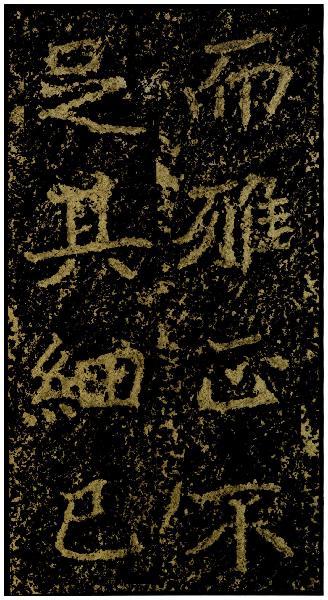 而雅正不
足其細已